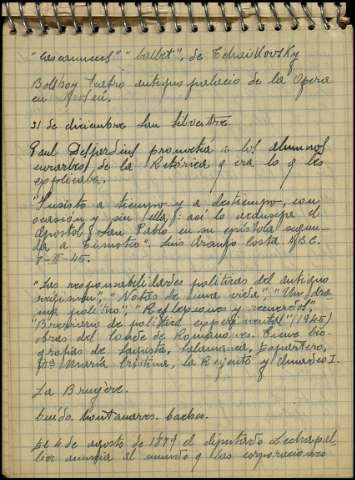 "Cascanueces" "ballet", de Tchaikovsky
y
Bolshoy Teatro antiguo palacio de la Opera
en Moscú.
31 de diciembre San Silvestre
Paul Desjardins preguntaba a los alumnos
de la Retórica q era lo q les
"Insisto a tiempo y a destiempo, con
ocasión y sin ella; así lo aconseja el
apóstol San Pablo en su epístola segun-
da a Timoteo". Luis Araujo Costa A.B.C.
8-II-45.
"Las responsabilidades políticas del antiguo
régimen", "Notas de una vida", "Un dra-
ma político", "Reflexiones y recuerdos"
"Breviario de política experimental" (1945)
obras del Conde de Romanones. Tiene bio-
grafías de Sagasta, Salamanca, Espartero,
Mª María Cristina, la Regente y Amadeo I.
La Bruyère.
Guido
El 4 de agosto de 1879 el diputado
anuncia al mundo q las corporaciones